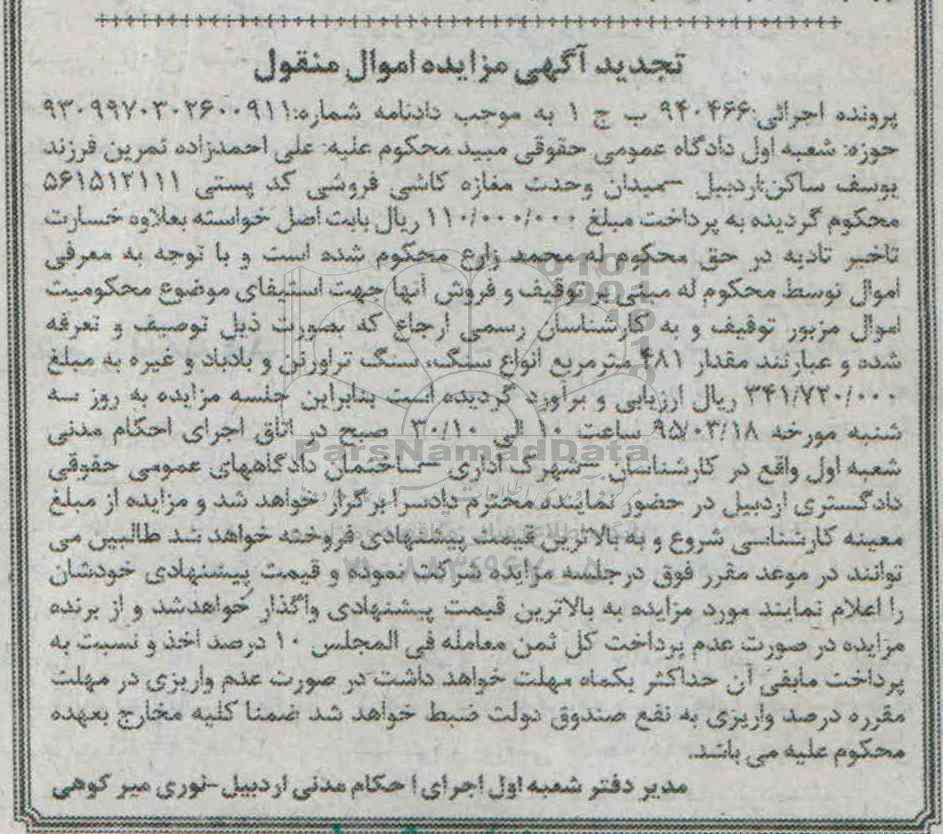 تجدید آگهی مزایده اموال منقول
پرونده اجرائی:۹۴۰۴۶۶ ب ج ۱ به موجب دادنامه شماره:۹۳۰۹۹۷۰۳۰۲۶۰۰۹۱۱
حوزه: شعبه اول دادگاه عمومی حقوقی مبید محکوم علیه: علی احمدزاده ثمرین فرزند
یوسف ساکن:اردبیل –میدان وحدت مغازه کاشی فروشی کد پستی ۵۶۱۵۱۲۱۱۱
محکوم گردیده به پرداخت مبلغ ۱۱۰/۰۰۰/۰۰۰ ریال بابت اصل خواسته بعلاوه خسارت
تاخیر تادیه در حق محکوم له محمد زارع محکوم شده است و با توجه به معرفی
اموال توسط محکوم له مبنی بر توقیف و فروش آنها جهت استیفای موضوع محکومیت
اموال مزبور توقیف و به کارشناسان رسمی ارجاع که بصورت ذیل توصیف و تعرفه
شده و عبارتند مقدار ۴۸۱ مترمربع انواع سنگ، سنگ تراورتن و بادباد و غیره به مبلغ
۳۴۱/۷۲۰/۰۰۰ ریال ارزیابی و برآورد گردیده است بنابراین جلسه مزایده به روز سه
شنبه مورخه ۹۵/۰۳/۱۸ ساعت ۱۰ الی ۳۰/۱۰ صبح در اتاق اجرای احکام مدنی
شعبه اول واقع در کارشناسان –شهرک اداری –ساختمان دادگاههای عمومی حقوقی
دادگستری اردبیل در حضور نماینده محترم دادسرا برگزار خواهد شد و مزایده از مبلغ
معینه کارشناسی شروع و به بالاترین قیمت پیشنهادی فروخته خواهد شد طالبین می
توانند در موعد مقرر فوق در جلسه مزایده شرکت نموده و قیمت پیشنهادی خودشان
را اعلام نمایند مورد مزایده به بالاترین قیمت پیشنهادی واگذار خواهدشد و از برنده
مزایده در صورت عدم پرداخت کل ثمن معامله فی المجلس ۱۰ درصد اخذ و نسبت به
پرداخت مابقی آن حداکثر یکماه مهلت خواهد داشت در صورت عدم واریزی در مهلت
مقرره درصد واریزی به نفع صندوق دولت ضبط خواهد شد ضمنا کلیه مخارج بعهده
محکوم علیه می باشد.
مدیر دفتر شعبه اول اجرای احکام مدنی اردبیل-نوری میر کوهی
ParsNamadData